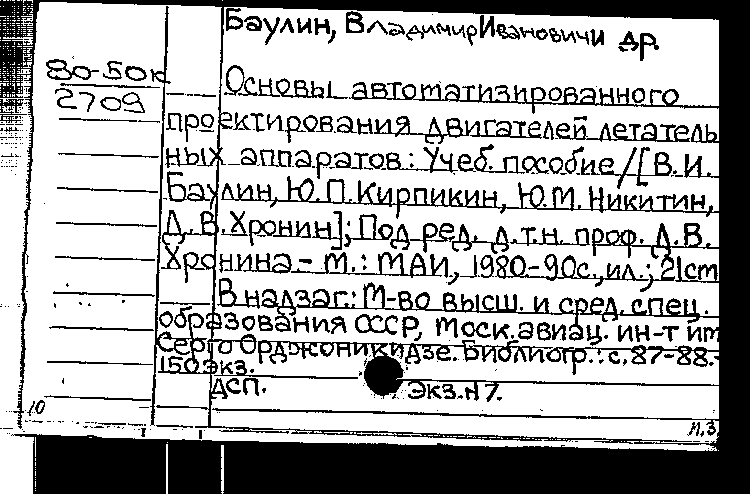 Баулин, Владимир Ивановичи др.
80-50к
2709
Основы автоматизированного
проектирования двигателей летатель
ных аппаратов: Учеб. пособие/[В.И.
Баулин, Ю.П.Кирпикин, Ю.М.Никитин,
Д.В.Хронин]; Под ред. д.т.н. проф. Д.В.
Хронина.- М.: МАИ, 1980-90с.,ил.; 21cm
В надзаг.: М-во высш. и сред. спец.
образования СССР, Моск.авиац. ин-т им
Серго Орджоникидзе. Библиогр.: с.87-88.-
150экз.
ДСП. Экз.N7.
10
п.3.